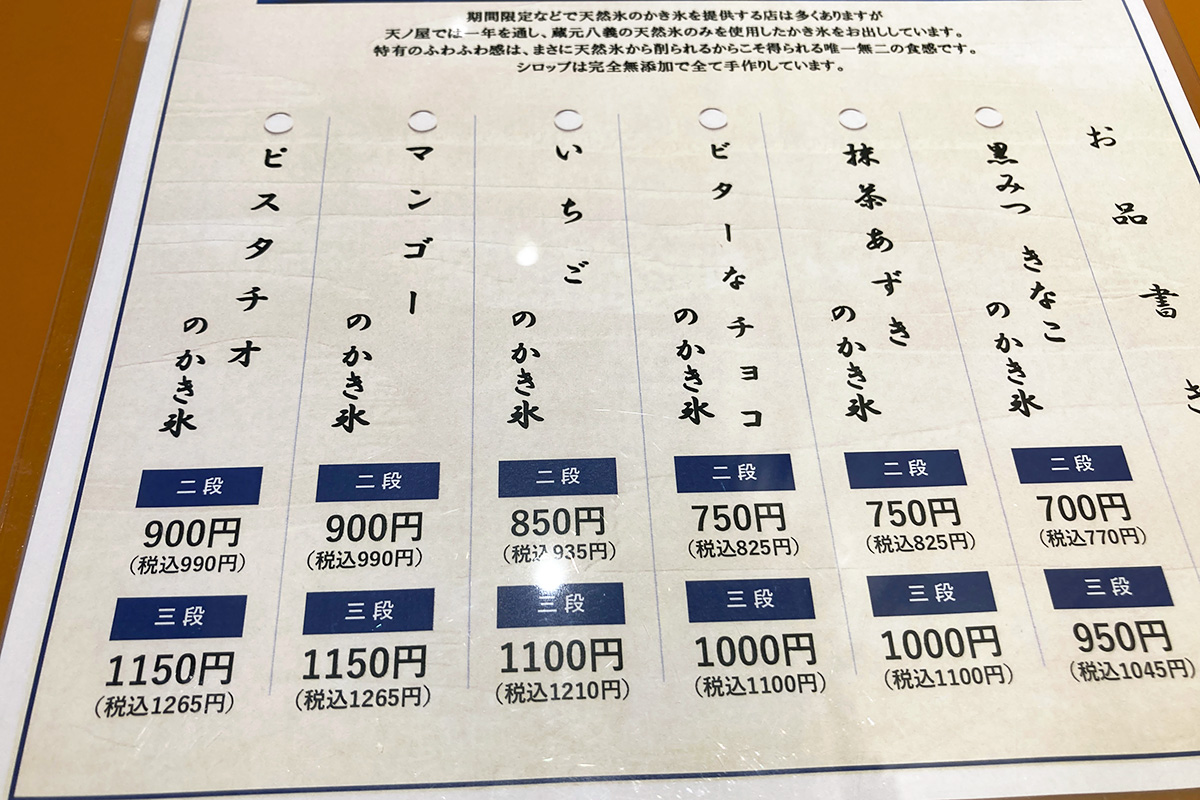 期間限定などで天然氷のかき氷を提供する店は多くありますが
天ノ屋では一年を通し、蔵元八義の天然氷のみを使用したかき氷をお出ししています。
特有のふわふわ感は、まさに天然氷から削られるからこそ得られる唯一無二の食感です。
シロップは完全無添加で全て手作りしています。
お品書き
黒みつ きなこ
のかき氷
二段
700円
(税込770円)
三段
950円
(税込1045円)
抹茶あずき
のかき氷
二段
750円
(税込825円)
三段
1000円
(税込1100円)
ビターなチョコ
のかき氷
二段
750円
(税込825円)
三段
1000円
(税込1100円)
いちご
のかき氷
二段
850円
(税込935円)
三段
1100円
(税込1210円)
マンゴー
のかき氷
二段
900円
(税込990円)
三段
1150円
(税込1265円)
ピスタチオ
のかき氷
二段
900円
(税込990円)
三段
1150円
(税込1265円)